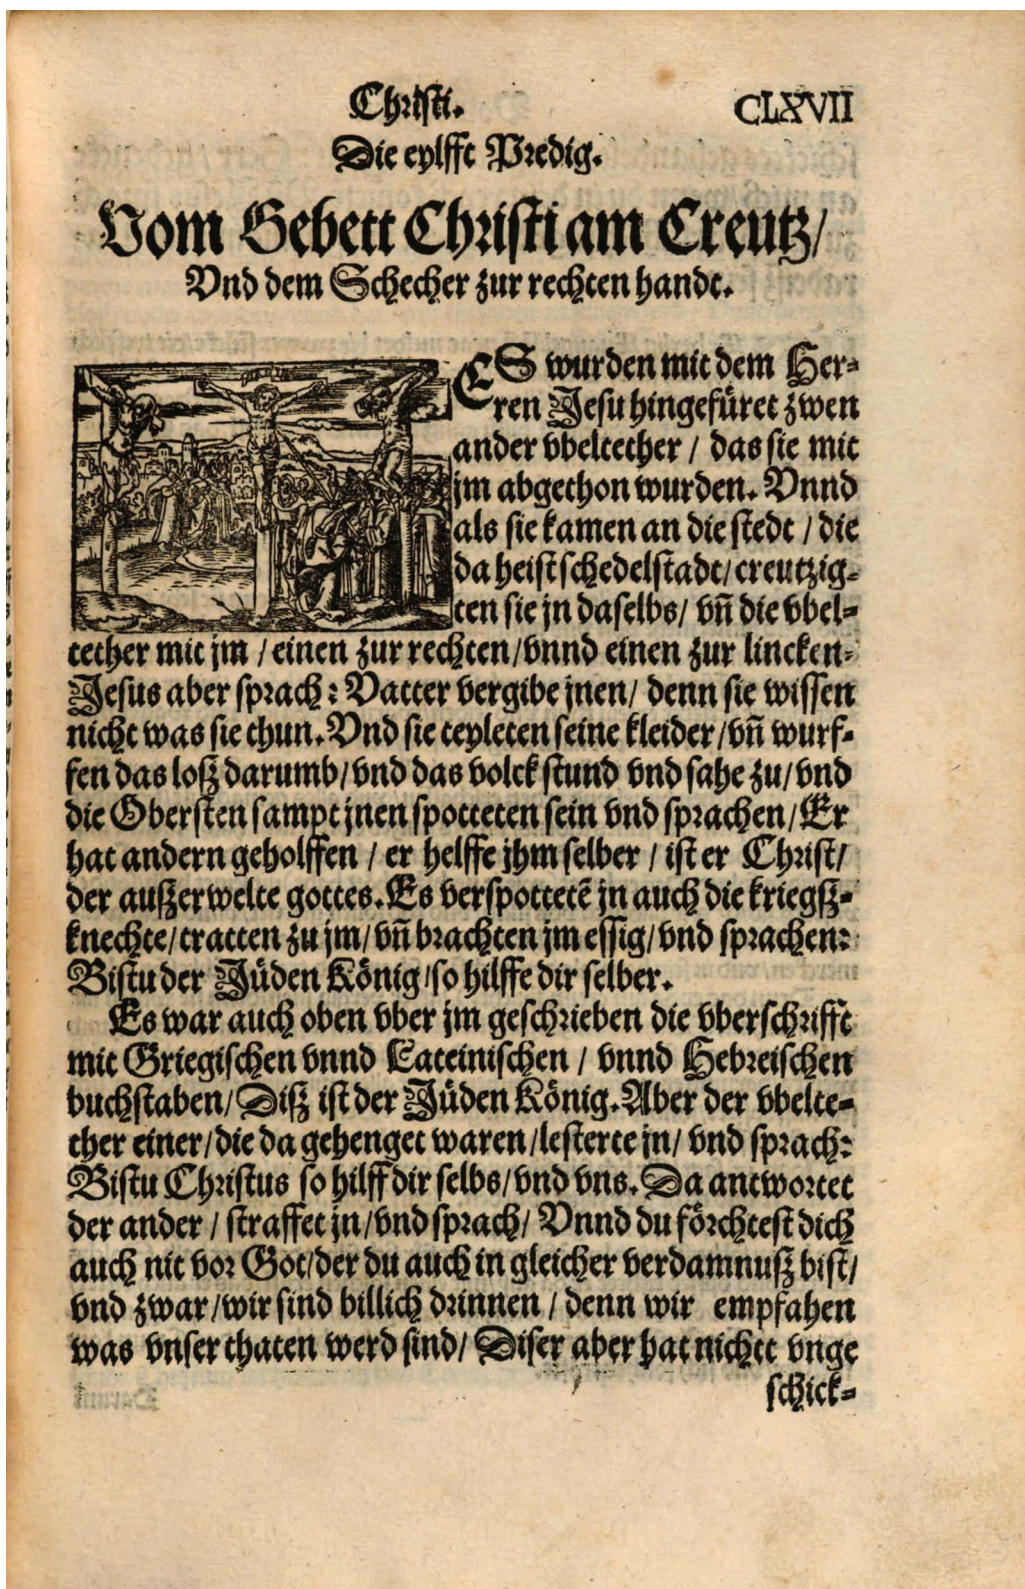 Christi.
CLXVII
Die eylfft Predig.
Vom Gebett Christi am Creutz/
Vnd dem Schecher zur rechten handt.
ES wurden mit dem Her-
ren Jesu hingefüret zwen
ander vbeltether / das sie mit
jm abgethon wurden. Vnnd
als sie kamen an die stedt / die
da heist schedelstadt/ creutzig-
ten sie jn daselbs/ vñ die vbel-
tether mit jm / einen zur rechten/vnnd einen zur lincken-
Jesus aber sprach: Vatter vergibe jnen/ denn sie wissen
nicht was sie thun. Vnd sie teyleten seine kleider/vñ wurf-
fen das loß darumb/vnd das volck stund vnd sahe zu/vnd
die Obersten sampt jnen spotteten sein vnd sprachen/Er
hat andern geholffen / er helffe jhm selber / ist er Christ/
der außerwelte gottes. Es verspottetẽ jn auch die kriegß-
knechte/tratten zu jm/vñ brachten jm essig/vnd sprachen:
Bistu der Jüden König/so hilffe dir selber.
Es war auch oben vber jm geschrieben die vberschrifft
mit Griegischen vnnd Lateinischen / vnnd Hebreischen
buchstaben/ Diß ist der Jüden König. Aber der vbelte-
ther einer/die da gehenget waren/lesterte jn/ vnd sprach:
Bistu Christus so hilff dir selbs/vnd vns. Da antwortet
der ander / straffet jn/vnd sprach/ Vnnd du förchtest dich
auch nit vor Got/der du auch in gleicher verdamnuß bist/
vnd zwar/wir sind billich drinnen / denn wir empfahen
was vnser thaten werd sind/ Diser aber hat nichtt vnge
schick-